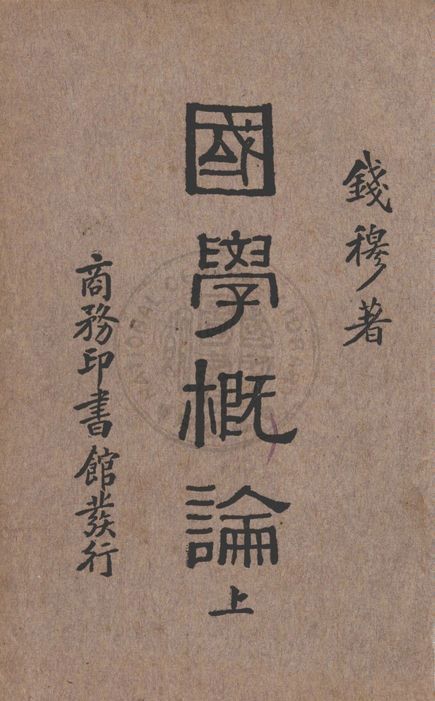 錢穆著
國學概論 上
商務印書館發行